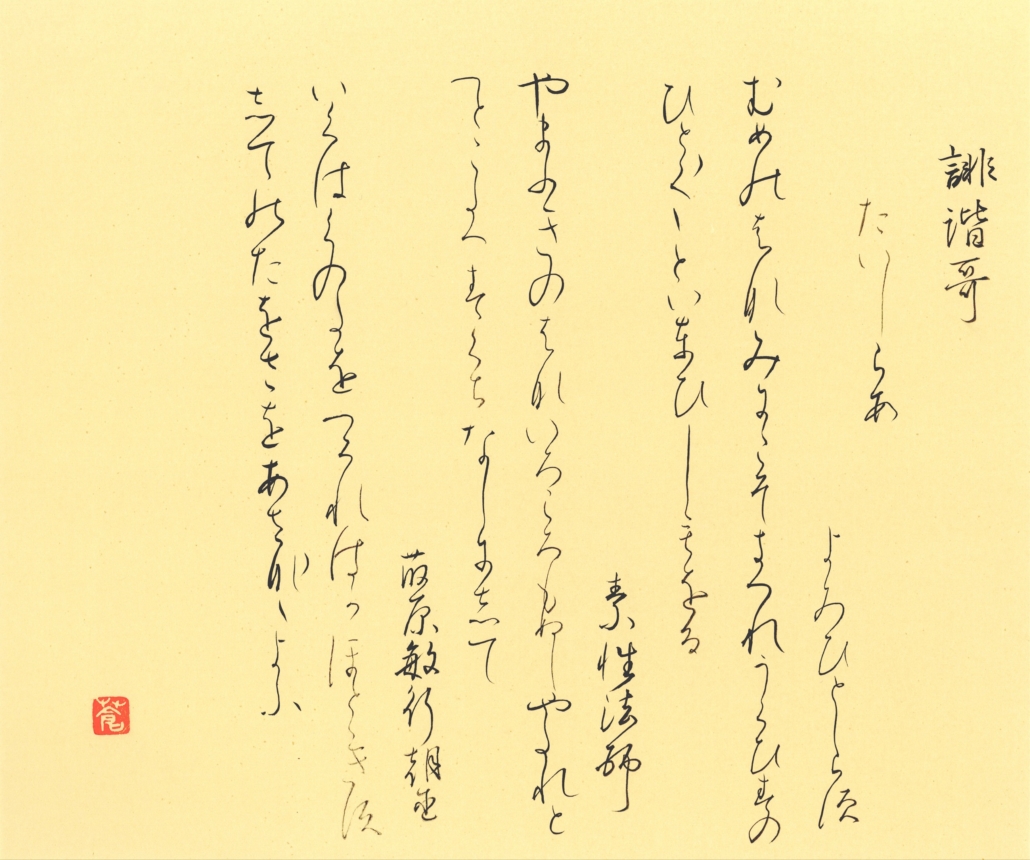 誹諧哥
たいしらす
よみひとしらす
むめのはなみにこそきつれうくひすの
ひとく／＼といとひしもをる
素性法師
やまふきのはないろころもぬしやたれと
へとこたへすくちなしにして
藤原敏行朝臣
いくはくのたをつくれはかほとゝきす
してのたをさをあさな／＼よふ
蒼